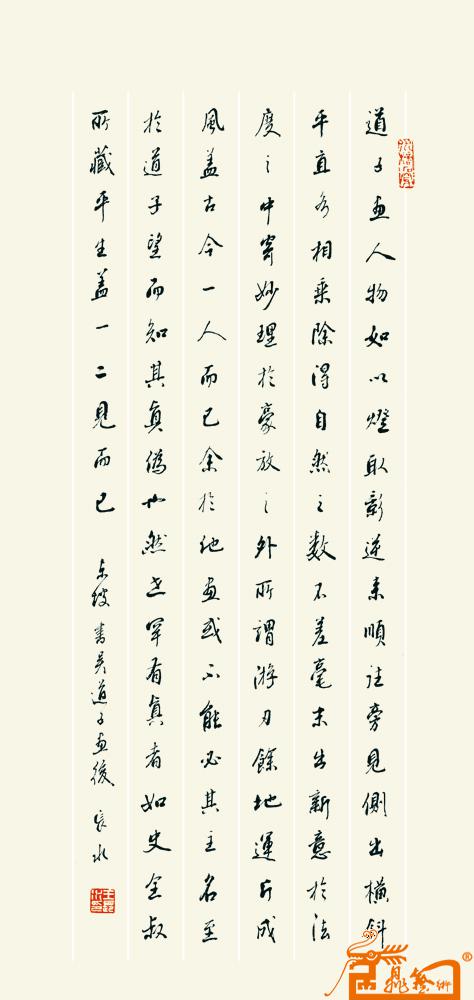 道子画人物如以燈取影逆来順往旁見側出橫斜
平直各相乘除得自然之数不差毫末出新意於法
度之中寄妙理於豪放之外所謂游刃餘地運斤成
風盖古今一人而已余於他画或不能必其主名至
於道子望而知其真偽也然世罕有真者如史全叔
所藏平生盖一二見而已 东坡書吴道子画後